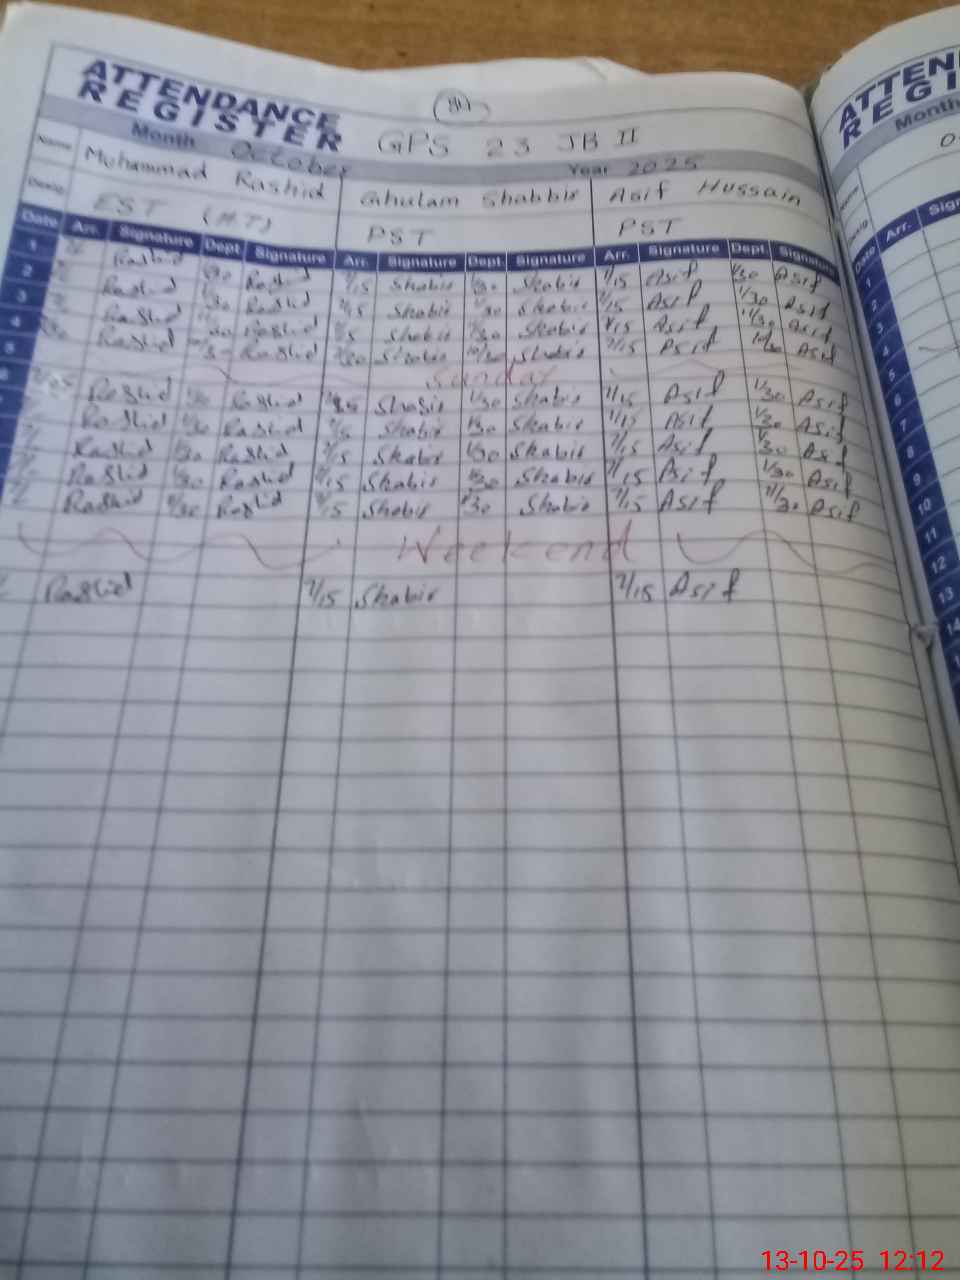 ATTENDANCE REGISTER
GPS 23 JB II
Month October Year 2025
Name Muhammad Rashid Ghulam Shabbir Asif Hussain
Desig: EST (H.T) PST PST
Date Arr. Signature Dept. Signature Arr. Signature Dept. Signature Arr. Signature Dept. Signature
1 Rashid 1/30 Rashid 7/15 Shabir 1/30 Shabir 7/15 Asif 1/30 Asif
2 Rashid 1/30 Rashid 7/15 Shabir 1/30 Shabir 7/15 Asif 1/30 Asif
3 Rashid Rashid Shabir 1/30 Shabir 7/15 Asif 11/30 Asif
4 Rashid Rashid Shabir Shabir 7/15 Asif Asif
5 Sunday
6 Rashid Rashid Shabir 1/30 Shabir 7/15 Asif 1/30 Asif
7 Rashid 1/30 Rashid Shabir 1/30 Shabir 7/15 Asif 1/30 Asif
Rashid 1/30 Rashid 7/15 Shabir 1/30 Shabir 7/15 Asif 1/30 Asif
Rashid 1/30 Rashid 7/15 Shabir Shabir 7/15 Asif 1/30 Asif
Rashid 11/30 Rashid 7/15 Shabir Shabir 7/15 Asif 11/30 Asif
Weekend
Rashid 7/15 Shabir 7/15 Asif
ATTEN
REGI
Month
Name
Desig:
Date Arr. Sign
1
2
3
4
5
6
7
8
9
10
11
12
13
14
13-10-25 12:12